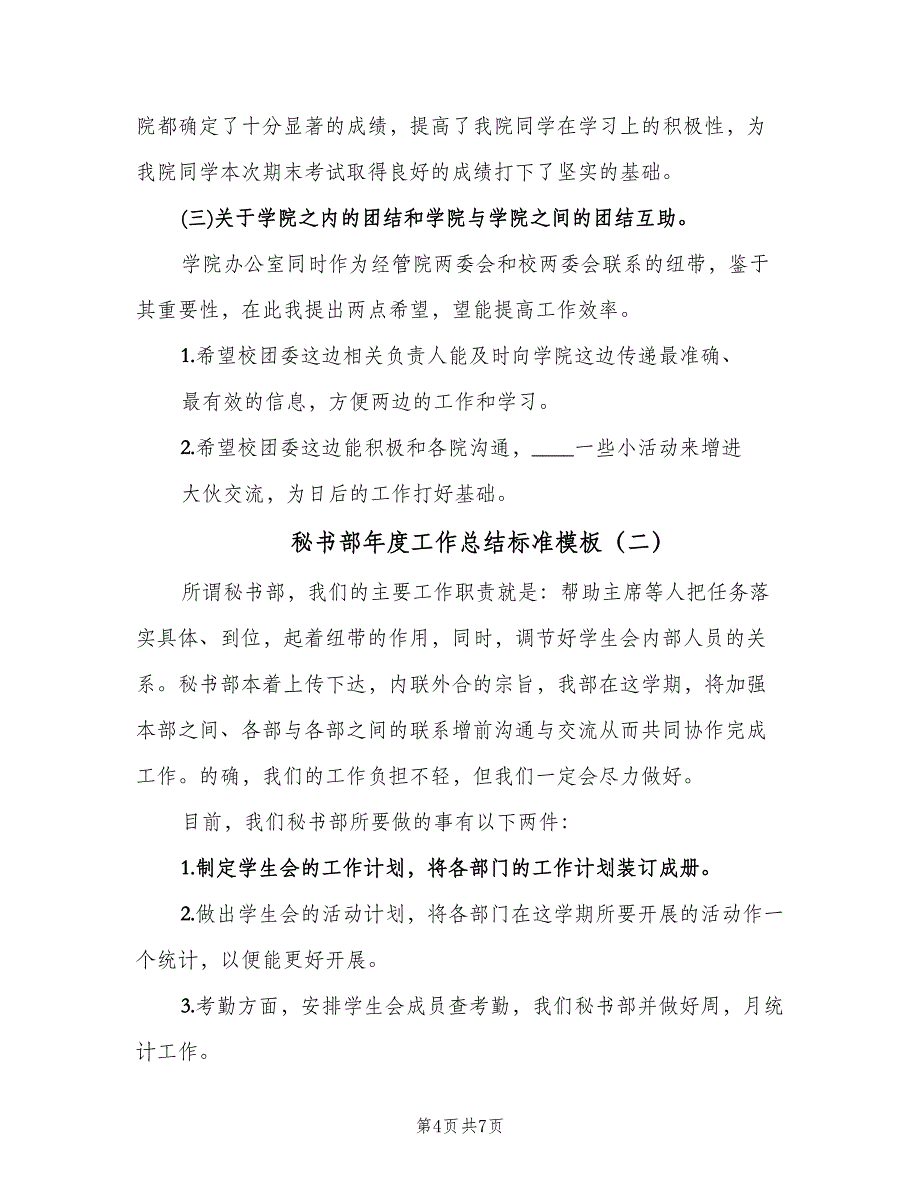 院都确定了十分显著的成绩，提高了我院同学在学习上的积极性，为
我院同学本次期末考试取得良好的成绩打下了坚实的基础。
(三)关于学院之内的团结和学院与学院之间的团结互助。
学院办公室同时作为经管院两委会和校两委会联系的纽带，鉴于
其重要性，在此我提出两点希望，望能提高工作效率。
1.希望校团委这边相关负责人能及时向学院这边传递最准确、
最有效的信息，方便两边的工作和学习。
2.希望校团委这边能积极和各院沟通，____一些小活动来增进
大伙交流，为日后的工作打好基础。
秘书部年度工作总结标准模板（二）
所谓秘书部，我们的主要工作职责就是：帮助主席等人把任务落
实具体、到位，起着纽带的作用，同时，调节好学生会内部人员的关
系。秘书部本着上传下达，内联外合的宗旨，我部在这学期，将加强
本部之间、各部与各部之间的联系增前沟通与交流从而共同协作完成
工作。的确，我们的工作负担不轻，但我们一定会尽力做好。
目前，我们秘书部所要做的事有以下两件：
1.制定学生会的工作计划，将各部门的工作计划装订成册。
2.做出学生会的活动计划，将各部门在这学期所要开展的活动作一
个统计，以便能更好开展。
3.考勤方面，安排学生会成员查考勤，我们秘书部并做好周，月统
计工作。
第4页共7页